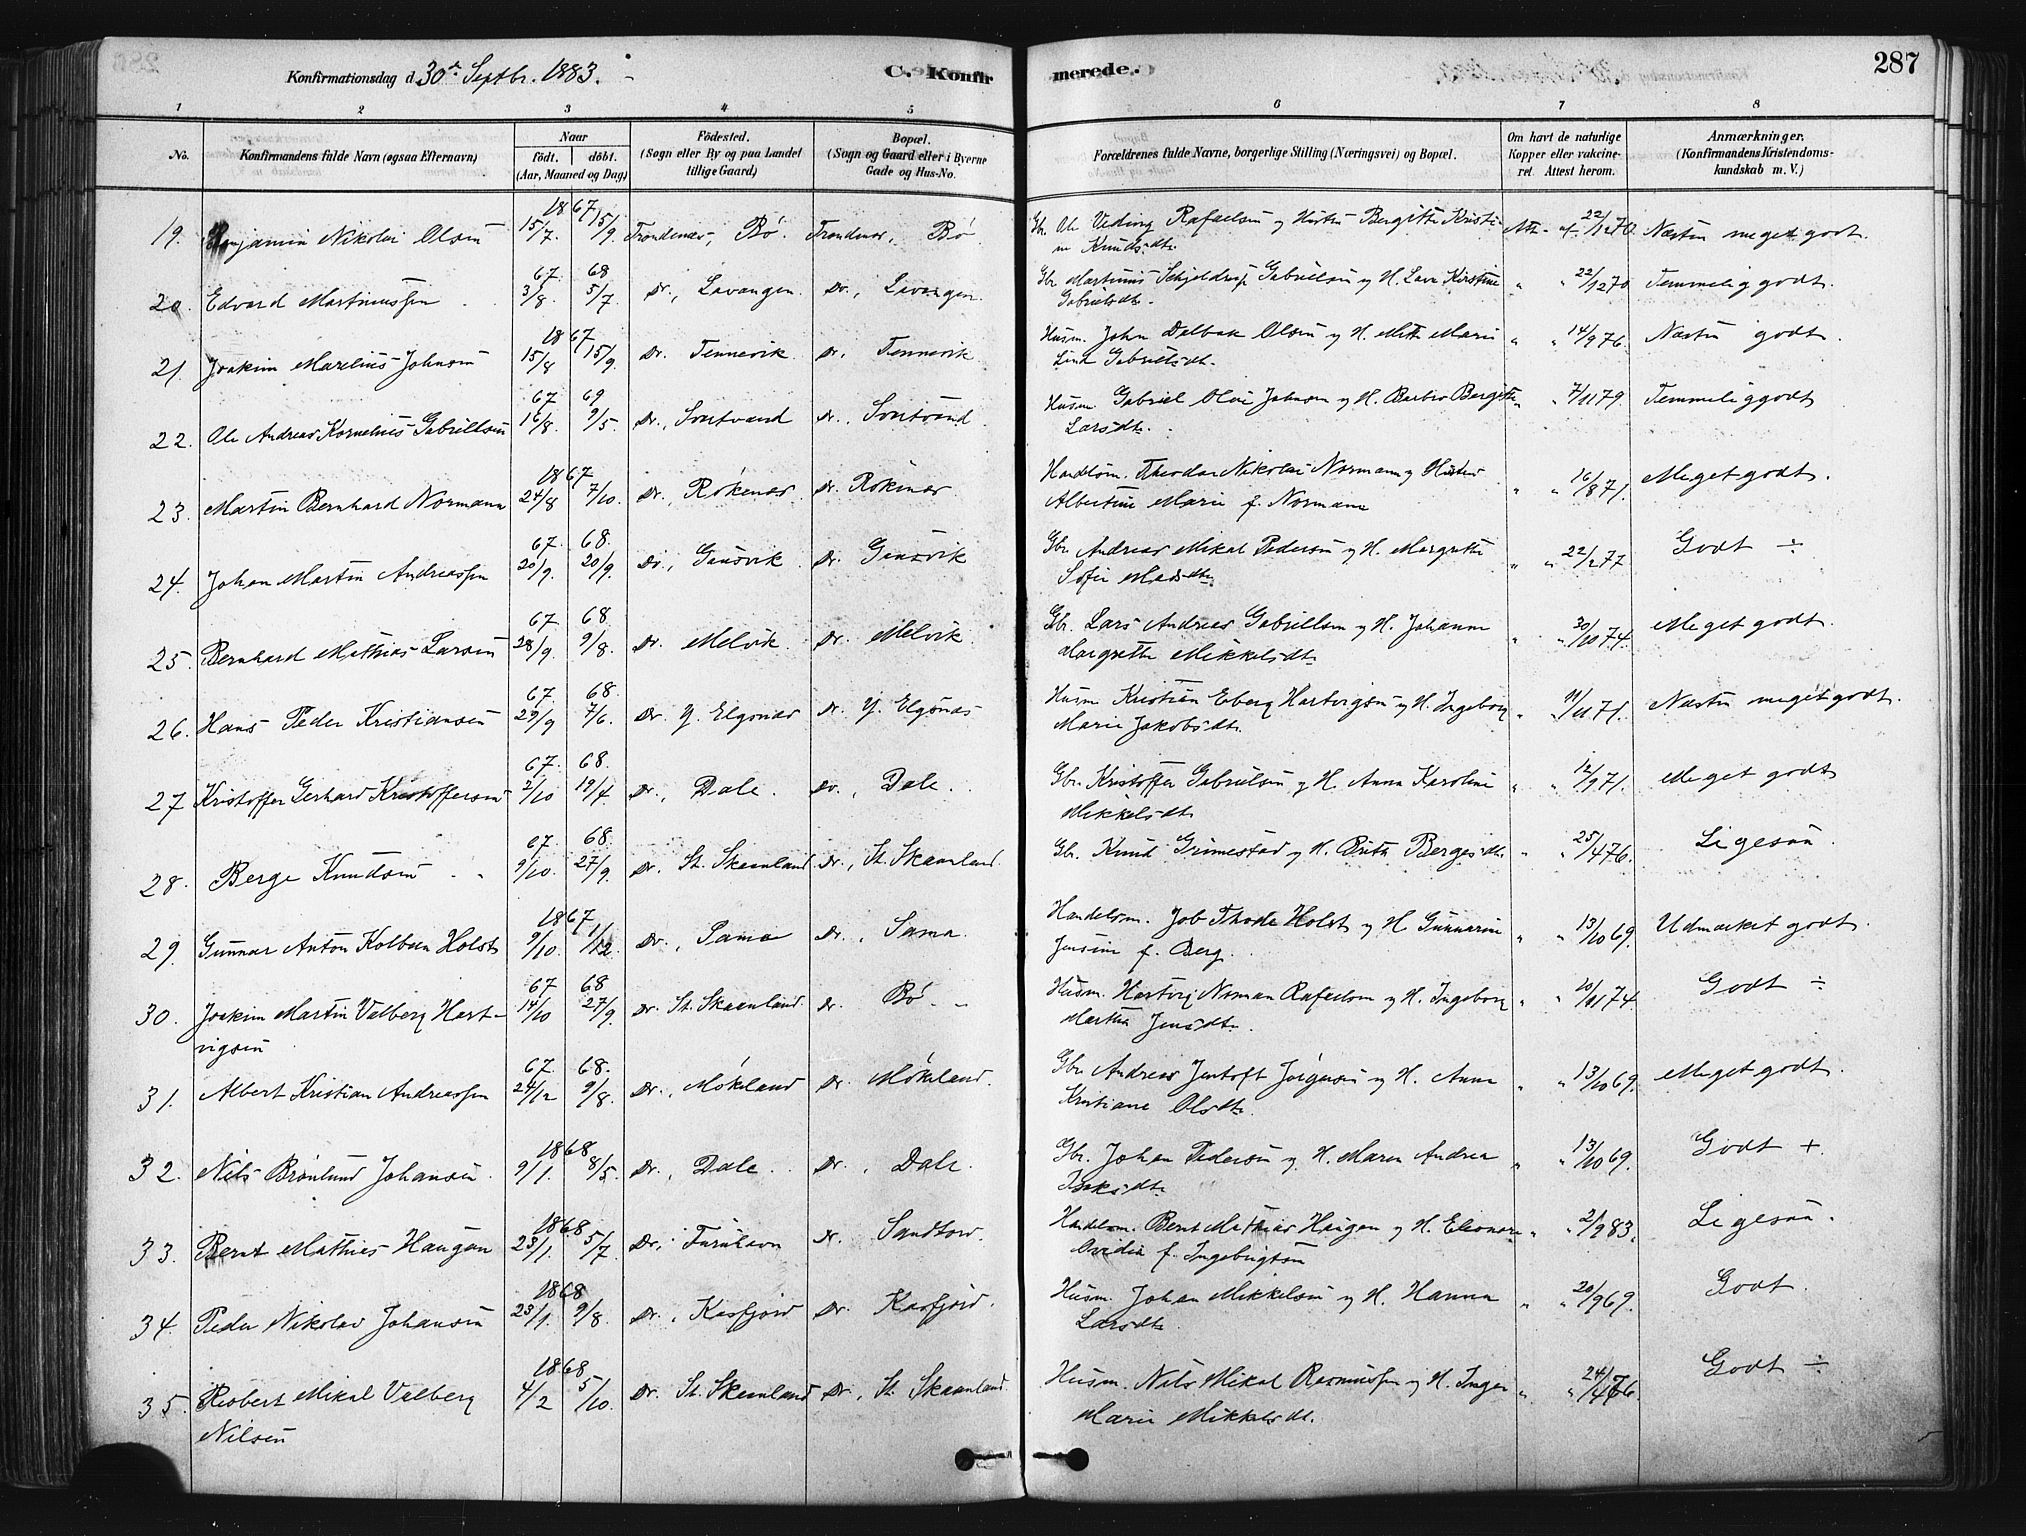 Konfirmationsdag d. 30te Septbr. 1883.
C. Konfirmerede.
287
1 2 3 4 5 6 7 8
No. Konfirmandens fulde Navn (ogsaa Efternavn) Naar födt. döbt. (Aar, Maaned og Dag) Födested. (Sogn eller By og paa Landet tillige Gaard) Bopæl. (Sogn og Gaard eller i Byerne Gade og Hus-No. Forældrenes fulde Navne, borgerlige Stilling (Næringsvei) og Bopæl. Om havt de naturlige Kopper eller vakcineret. Attest herom. Anmærkninger. (Konfirmandens Kristendomskundskab m. V.)
19. Benjamin Nikolai Olsen 1867 15/7 15/9 Trondenæs, Bö. Trondenæs, Bö Gbr. Ole Veding Rafaelsen og Hustru Bergitte Kristine Knudsdtr. Att. af 22/12 70. Næsten meget godt.
20. Edvard Martinussen 67 3/8 68 5/7 Do., Lavangen. Do., Lavangen. Gbr. Martinus Schjeldrup Gabrielsen og H. Lava Kirstine Gabrielsdtr. " " 22/12 70 Temmelig godt.
21. Joakim Marelius Johnsen 1867 15/8 15/9 Do. Tennevik. Do. Tennevik Husm. John Dalbak Olsen og H. Mette Marie Lind Gabrielsdtr. " " 14/9 76. Næsten godt.
22. Ole Andreas Kornelius Gabrielsen 67 16/8. 69 9/5. Do., Sortvand Do., Sortvand Husm. Gabriel Olai Johnsen og H. Barbro Bergitte Larsdtr. " " 7/11 79. Temmelig godt
23. Martin Bernhard Normann 1867 24/8 7/10. Do., Rökenæs. Do. Rökenæs Handelsm. Theodor Nikolai Normann og Hustru Albertine Marie f. Normann " " 16/8 71. Meget godt.
24. Johan Martin Andreassen 67. 20/9. 68. 20/9. Do., Gausvik. Do. Gausvik Gbr. Andreas Mikal Pedersen og H. Margrethe Sofie Madsdtr. " " 22/2 77 Godt ÷
25. Bernhard Mathias Larsen 67 28/9. 68. 9/8. Do. Melvik. Do. Melvik. Gbr. Lars Andreas Gabrielsen og H. Johanna Margrethe Mikkelsdtr. " " 30/10 74. Meget godt.
26. Hans Peder Kristiansen 67 29/9 68. 7/6. Do. Y. Elgsnæs Do. Y. Elgsnæs Husm. Kristian Eberg Hartvigsen og H. Ingeborg Marie Jakobsdtr. " " 11/11 71. Næsten meget godt.
27 Kristoffer Gerhard Kristoffersen 67. 2/10 68. 19/4 Do., Dale. Do., Dale. Gbr. Kristoffer Gabrielsen og H. Anna Karoline Mikkelsdtr. " " 12/9 71. Meget godt
28. Berge Knudsen 67 9/10. 68. 27/9. Do. St. Skaanland Do., St. Skaanland. Gbr. Knud Grimestad og H. Brita Bergesdtr. " " 25/4 76. Ligesaa.
29. Gunnar Anton Kolbein Holst 1867 9/10. 1/12. Do., Sama Do., Sama. Handelsm. Job Thode Holst og H. Gunnarine Jensine f. Berg. " " 13/10 69. Udmærket godt.
30. Joakim Martin Valberg Hartvigsen 67 14/10 68 27/9. Do. St. Skaanland. Do. Bö. Husm. Hartvig Noman Rafaelsen og H. Ingeborg Martha Jensdtr. " " 20/11 74. Godt ÷
31. Albert Kristian Andreassen 67. 24/12 68. 9/8. Do., Mökeland Do. Mökeland. Gbr. Andreas Jentoft Jörgensen og H. Anna Kristiane Olsdtr. " " 13/10 69. Meget godt.
32. Nils Brönlund Johansen. 1868 9/1. 8/5. Do., Dale. Do., Dale. Gbr. Johan Pedersen og H. Maren Andrea Isaksdtr. " " 13/10 69. Godt +.
33. Bernt Mathias Haugan 1868 23/1. 5/7. Do., Furuhavn Do. Sandtorv. Handelsm. Bernt Mathias Haugen og H. Eleonore Ovidia f. Ingebrigtsen " " 2/9 83. Ligesaa.
34. Peder Nikolai Johansen 1868 23/1. 9/8. Do., Kasfjord Do. Kasfjord. Husm. Johan Mikkelsen og H. Hanna Larsdtr. " " 20/9 69. Godt.
35. Robert Mikal Valberg Nilsen 1868 4/2 5/10. Do. St. Skaanland Do., St. Skaanland. Husm. Nils Mikal Rasmussen og H. Inger Marie Mikkelsdt. " " 24/4 76. Godt ÷